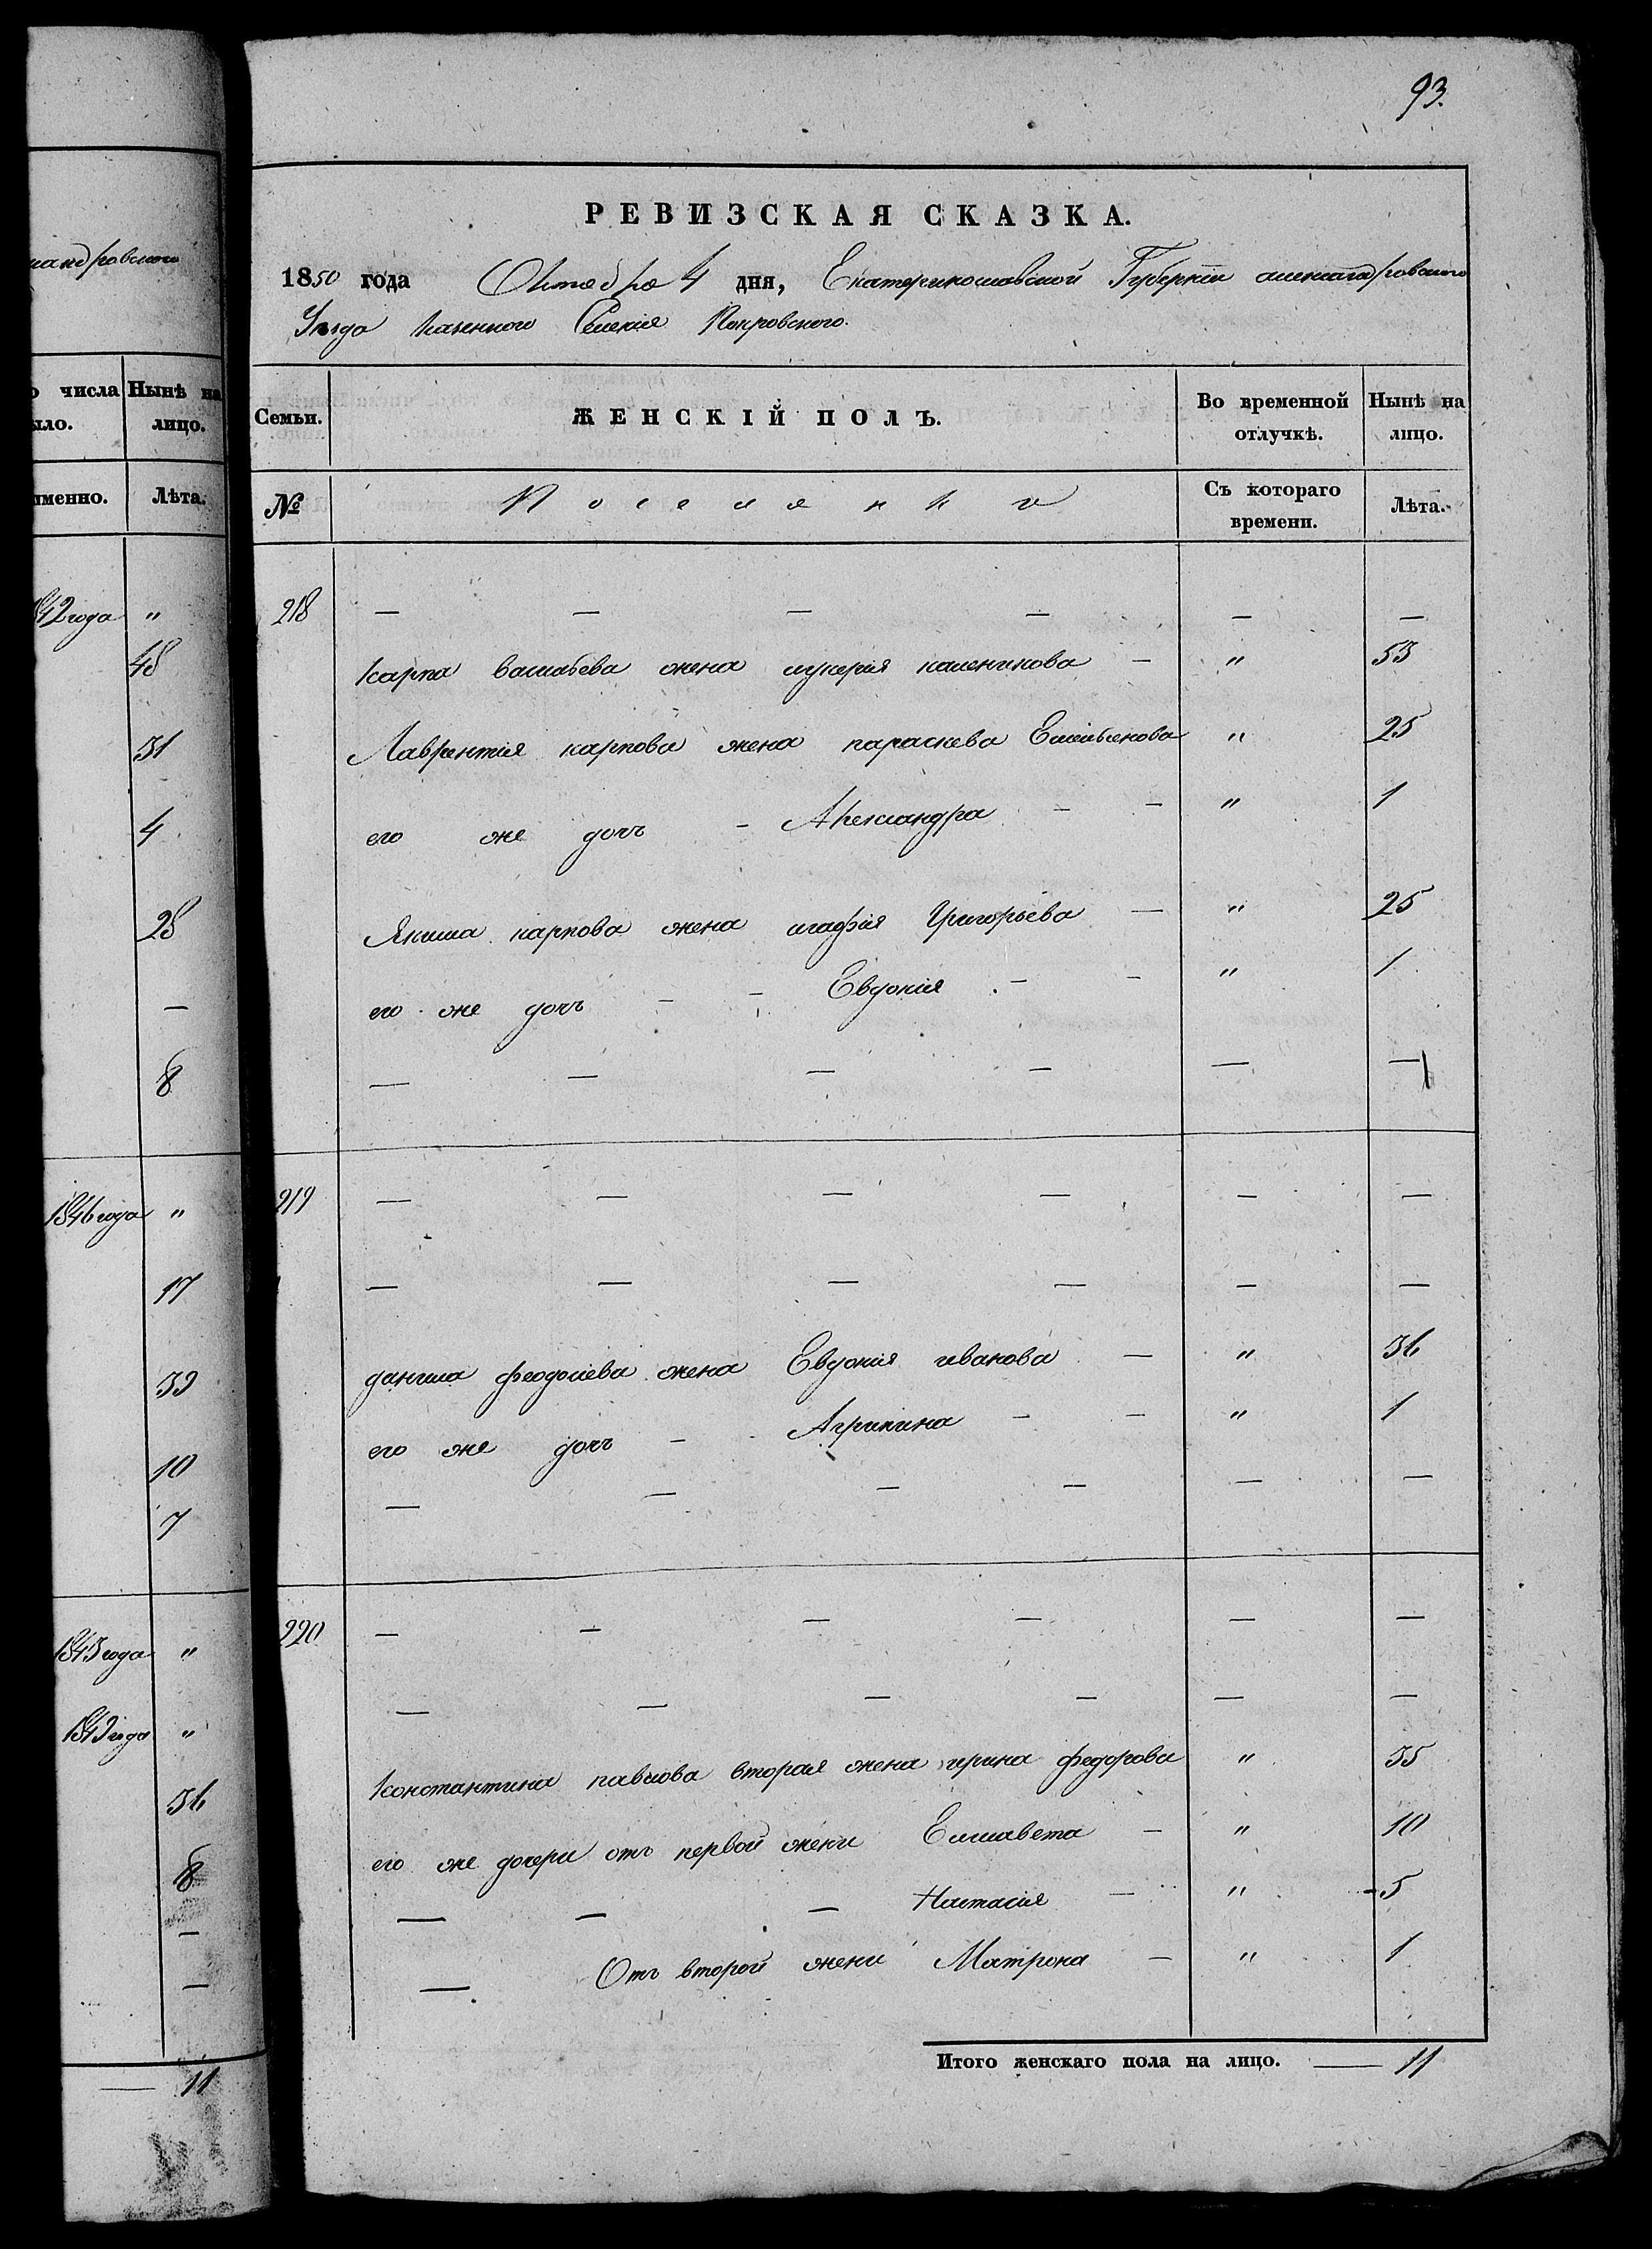 93.
РЕВИЗСКАЯ СКАЗКА.
1850 года Октебре 4 дня, Екатеринославской Губернии александровского
Уезда казенного Селения Покровского.
Семьи. ЖЕНСКІЙ ПОЛЪ. Во временной отлучкѣ. Нынѣ на лицо.
№ Поселянки Съ котораго времени. Лѣта.
218 — — — — — —
карпа васильева жена лукерия каленикова — " 53
Лаврентия карпова жена параскева Емельенова " 25
его же дочь - Александра - - " 1
Якима карпова жена агафия Григорьева — " 25
его же дочь - - Евдокия - - " 1
— — — — — —
219 — — — — — —
— — — — — —
данила феодосиева жена Евдокия иванова — " 36
его же дочь - Агрипина - - " 1
— — — — — —
220 — — — — — —
— — — — — —
Константина павлова вторая жена ирина федорова " 35
его же дочери отъ первой жени Елисавета - " 10
— — — Настасия - " 5
— Отъ второй жени Матрона - " 1
Итого женскаго пола на лицо. — 11
числа Нынѣ на
лицо.
Лѣта.
1842 года "
48
31
4
28
—
8
1846 года "
17
39
10
7
1843 года "
"
36
8
—
—
— 11